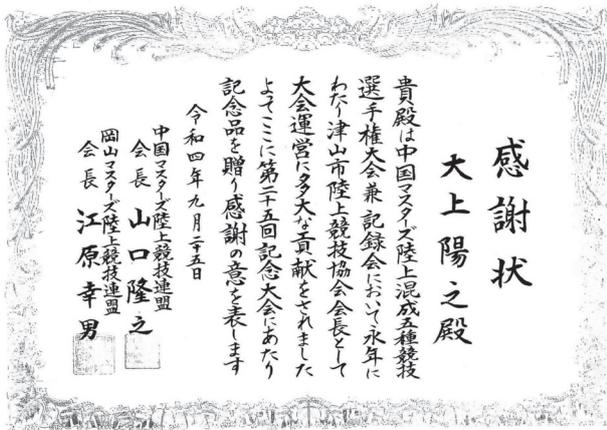 感謝状
大上陽之殿
貴殿は中国マスターズ陸上混成五種競技
選手権大会兼記録会において永年に
わたり津山市陸上競技協会会長として
大会運営に多大な貢献をされました
よってここに第二十五回記念大会にあたり
記念品を贈り感謝の意を表します
令和四年九月二十五日
中国マスターズ陸上競技連盟
会長 山口隆之
岡山マスターズ陸上競技連盟
会長 江原幸男